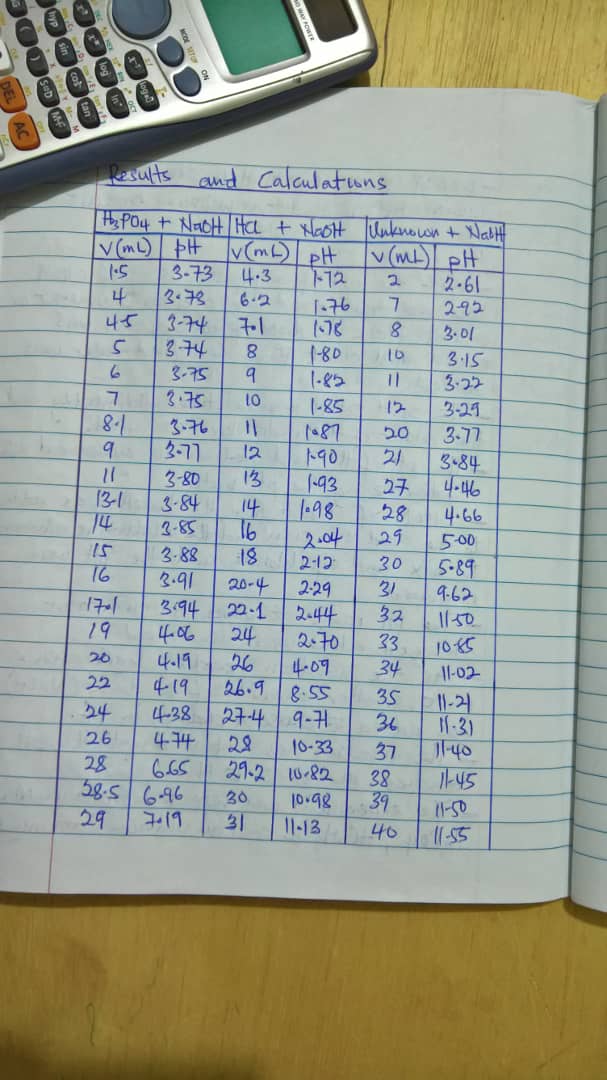 NO WAY POWER
MODE SETUP ON
hyp sin cos tan
log ln x⁻¹ log₂
S⇔D M+
DEL
AC
Results and Calculations
H₃PO₄ + NaOH | HCl + NaOH | Unknown + NaOH
V(mL) pH V(mL) pH V(mL) pH
1.5 3.73 4.3 1.72 2 2.61
4 3.73 6.2 1.76 7 2.92
4.5 3.74 7.1 1.78 8 3.01
5 3.74 8 1.80 10 3.15
6 3.75 9 1.82 11 3.22
7 3.75 10 1.85 12 3.29
8.1 3.76 11 1.87 20 3.77
9 3.77 12 1.90 21 3.84
11 3.80 13 1.93 27 4.46
13.1 3.84 14 1.98 28 4.66
14 3.85 16 2.04 29 5.00
15 3.88 18 2.12 30 5.89
16 3.91 20.4 2.29 31 9.62
17.1 3.94 22.1 2.44 32 11.50
19 4.06 24 2.70 33 10.85
20 4.19 26 4.09 34 11.02
22 4.19 26.9 8.55 35 11.21
24 4.38 27.4 9.71 36 11.31
26 4.74 28 10.33 37 11.40
28 6.65 29.2 10.82 38 11.45
28.5 6.96 30 10.98 39 11.50
29 7.19 31 11.13 40 11.55